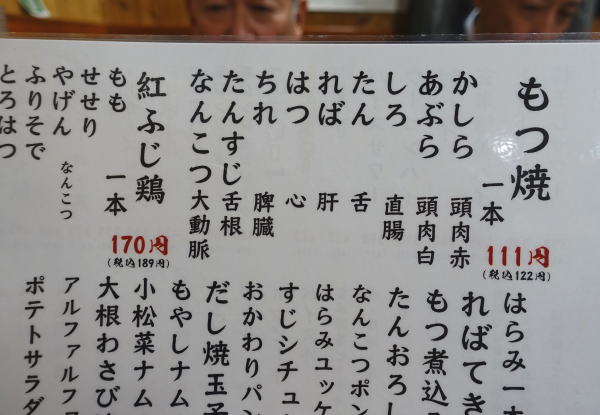 もつ焼
一本
111円
(税込122円)
かしら 頭肉赤
あぶら 頭肉白
しろ 直腸
たん 舌
ればー 肝
はつ 心
ちれ 脾臓
たんすじ 舌根
なんこつ 大動脈
紅ふじ鶏
一本
170円
(税込189円)
もも
せせり
やげん なんこつ
ふりそで
とろはつ
はらみ一
ればてき
もつ煮込
たんおろし
なんこつポン
はらみユッケ
すじシチュ
おかわりパン
だし焼玉子
もやしナム
小松菜ナム
大根わさび
アルファルフ
ポテトサラダ